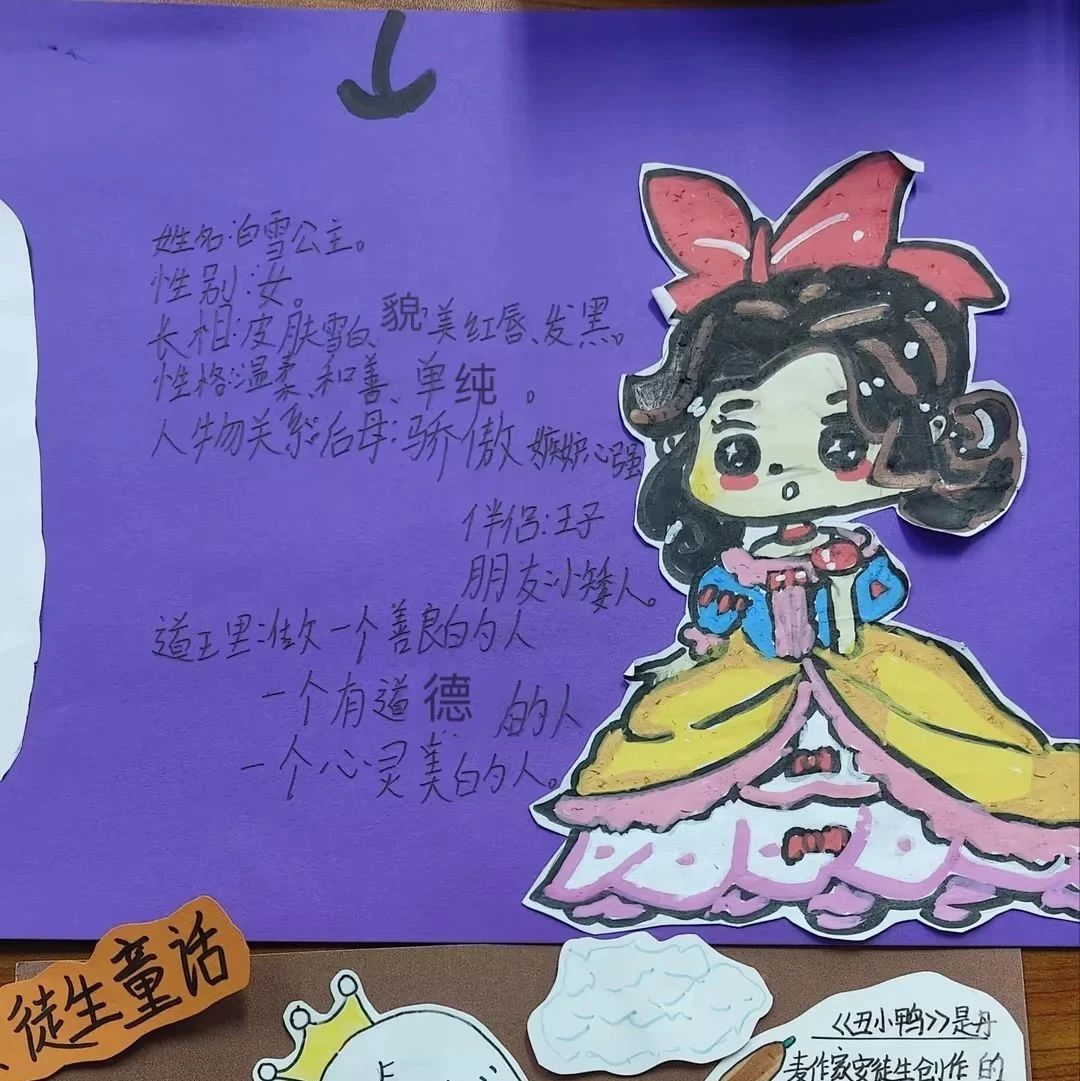 姓名:白雪公主。
性别:女。
长相:皮肤雪白、貌美红唇、发黑。
性格:温柔、和善、单纯。
人物关系:后母:骄傲 嫉妒心强
伴侣:王子
朋友:小矮人。
道理:做一个善良的人
一个有道德的人
一个心灵美的人。
徒生童话
《丑小鸭》是丹
麦作家安徒生创作的